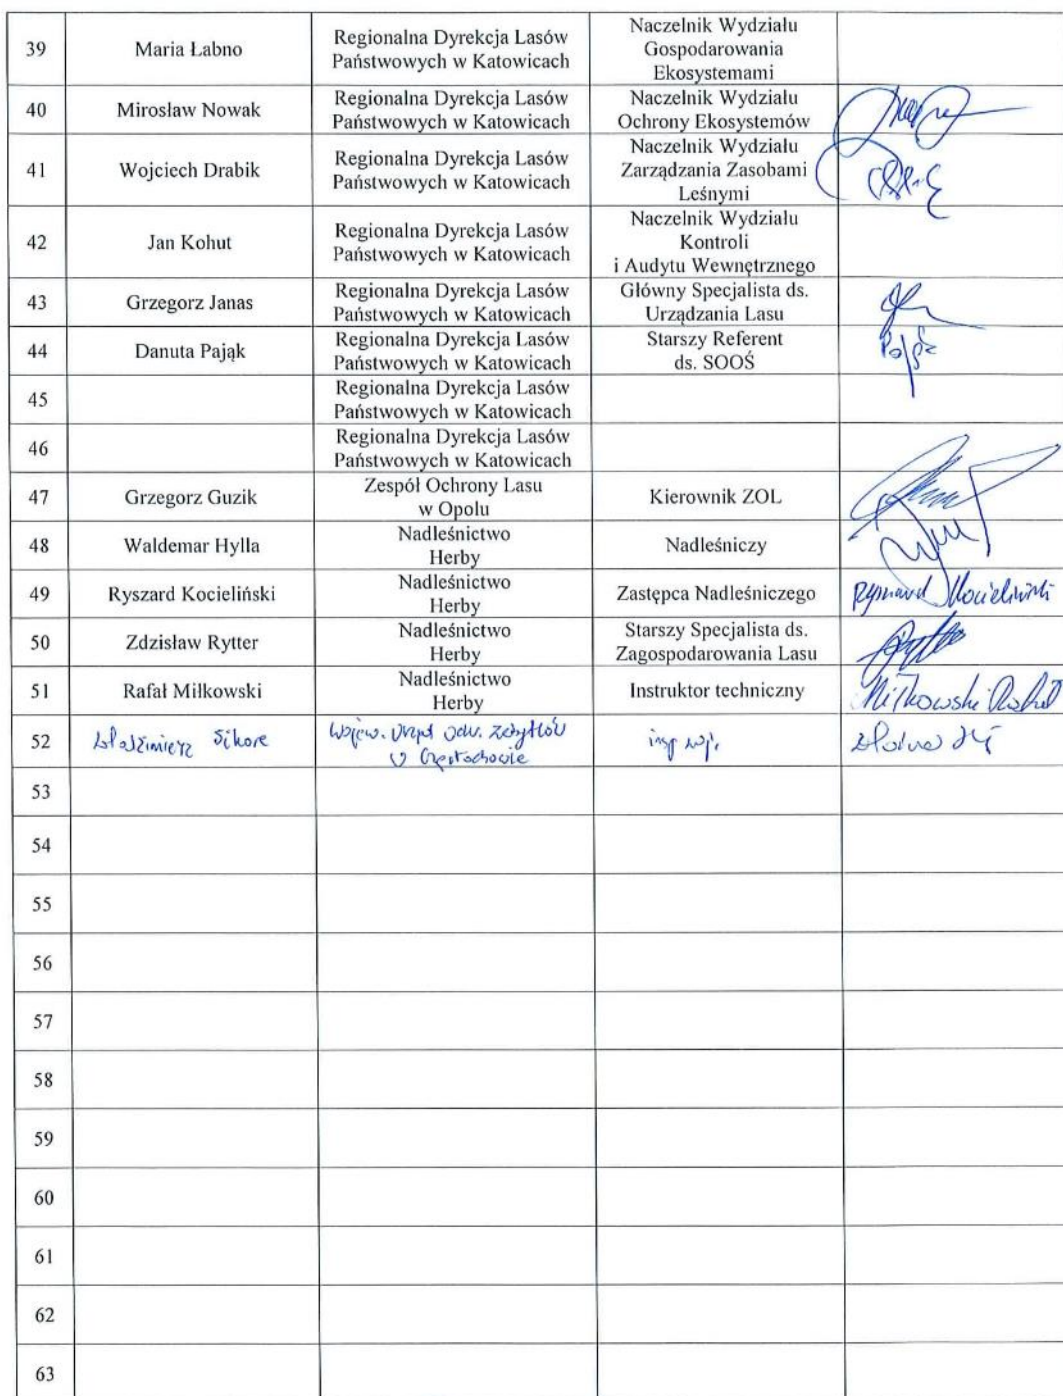 39 Maria Łabno Regionalna Dyrekcja Lasów Państwowych w Katowicach Naczelnik Wydziału Gospodarowania Ekosystemami
40 Mirosław Nowak Regionalna Dyrekcja Lasów Państwowych w Katowicach Naczelnik Wydziału Ochrony Ekosystemów
41 Wojciech Drabik Regionalna Dyrekcja Lasów Państwowych w Katowicach Naczelnik Wydziału Zarządzania Zasobami Leśnymi
42 Jan Kohut Regionalna Dyrekcja Lasów Państwowych w Katowicach Naczelnik Wydziału Kontroli i Audytu Wewnętrznego
43 Grzegorz Janas Regionalna Dyrekcja Lasów Państwowych w Katowicach Główny Specjalista ds. Urządzania Lasu
44 Danuta Pająk Regionalna Dyrekcja Lasów Państwowych w Katowicach Starszy Referent ds. SOOŚ Pająk
45 Regionalna Dyrekcja Lasów Państwowych w Katowicach
46 Regionalna Dyrekcja Lasów Państwowych w Katowicach
47 Grzegorz Guzik Zespół Ochrony Lasu w Opolu Kierownik ZOL
48 Waldemar Hylla Nadleśnictwo Herby Nadleśniczy
49 Ryszard Kocieliński Nadleśnictwo Herby Zastępca Nadleśniczego Ryszard Kocieliński
50 Zdzisław Rytter Nadleśnictwo Herby Starszy Specjalista ds. Zagospodarowania Lasu
51 Rafał Miłkowski Nadleśnictwo Herby Instruktor techniczny Miłkowski Rafał
52 Sikora Wojew. Urząd Och. Zabytków w Częstochowie insp woj.
53
54
55
56
57
58
59
60
61
62
63